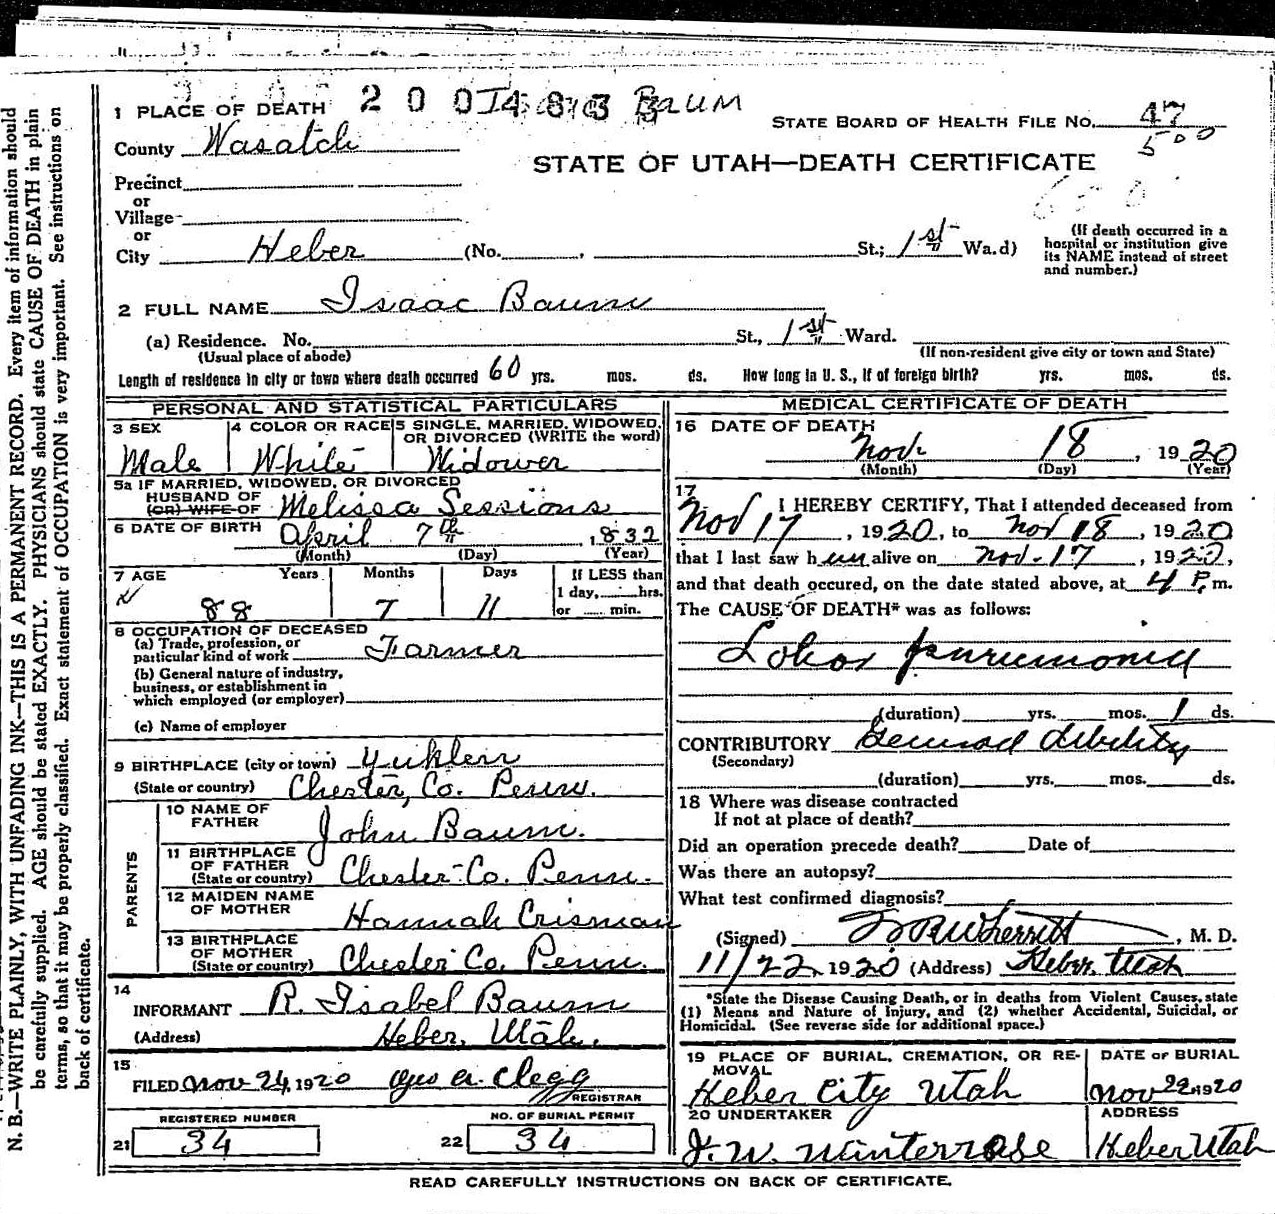 2004835 Isaac Baum
1 PLACE OF DEATH
STATE BOARD OF HEALTH FILE No. 47
500
County Wasatch
STATE OF UTAH—DEATH CERTIFICATE
Precinct
or
Village
or
City Heber (No. , St.; 1st Wa.d)
(If death occurred in a hospital or institution give its NAME instead of street and number.)
2 FULL NAME Isaac Baum
(a) Residence. No. St., 1st Ward.
(Usual place of abode) (If non-resident give city or town and State)
Length of residence in city or town where death occurred 60 yrs. mos. ds. How long in U. S., if of foreign birth? yrs. mos. ds.
PERSONAL AND STATISTICAL PARTICULARS
3 SEX 4 COLOR OR RACE 5 SINGLE, MARRIED, WIDOWED, OR DIVORCED (WRITE the word)
Male White Widower
5a IF MARRIED, WIDOWED, OR DIVORCED
HUSBAND OF
(OR) WIFE OF Melissa Sessions
6 DATE OF BIRTH April 7th, 1832
(Month) (Day) (Year)
7 AGE Years Months Days If LESS than
1 day, hrs.
88 7 11 or min.
8 OCCUPATION OF DECEASED
(a) Trade, profession, or
particular kind of work Farmer
(b) General nature of industry,
business, or establishment in
which employed (or employer)
(c) Name of employer
9 BIRTHPLACE (city or town)
(State or country) Chester, Co. Penn.
PARENTS
10 NAME OF
FATHER John Baum.
11 BIRTHPLACE
OF FATHER
(State or country) Chester Co. Penn.
12 MAIDEN NAME
OF MOTHER Hannah Crisman
13 BIRTHPLACE
OF MOTHER
(State or country) Chester Co. Penn.
14
INFORMANT R. Isabel Baum
(Address) Heber, Utah.
15
FILED Nov 24, 1920 Geo A. Clegg
REGISTRAR
REGISTERED NUMBER NO. OF BURIAL PERMIT
21 34 22 34
MEDICAL CERTIFICATE OF DEATH
16 DATE OF DEATH
Nov. 18, 1920
(Month) (Day) (Year)
17
I HEREBY CERTIFY, That I attended deceased from
Nov 17, 1920, to Nov 18, 1920
that I last saw him alive on Nov-17, 1920,
and that death occured, on the date stated above, at 4 P. m.
The CAUSE OF DEATH* was as follows:
Lobar pneumonia
(duration) yrs. mos. 1 ds.
CONTRIBUTORY General debility
(Secondary)
(duration) yrs. mos. ds.
18 Where was disease contracted
If not at place of death?
Did an operation precede death? Date of
Was there an autopsy?
What test confirmed diagnosis?
(Signed) Wherritt, M. D.
11/22, 1920 (Address) Heber, Utah
*State the Disease Causing Death, or in deaths from Violent Causes, state
(1) Means and Nature of Injury, and (2) whether Accidental, Suicidal, or
Homicidal. (See reverse side for additional space.)
19 PLACE OF BURIAL, CREMATION, OR RE-
MOVAL DATE OF BURIAL
Heber City Utah Nov 22, 1920
20 UNDERTAKER ADDRESS
J. W. Winterrose Heber Utah
READ CAREFULLY INSTRUCTIONS ON BACK OF CERTIFICATE.
N. B.—WRITE PLAINLY, WITH UNFADING INK—THIS IS A PERMANENT RECORD. Every item of information should
be carefully supplied. AGE should be stated EXACTLY. PHYSICIANS should state CAUSE OF DEATH in plain
terms, so that it may be properly classified. Exact statement of OCCUPATION is very important. See instructions on
back of certificate.